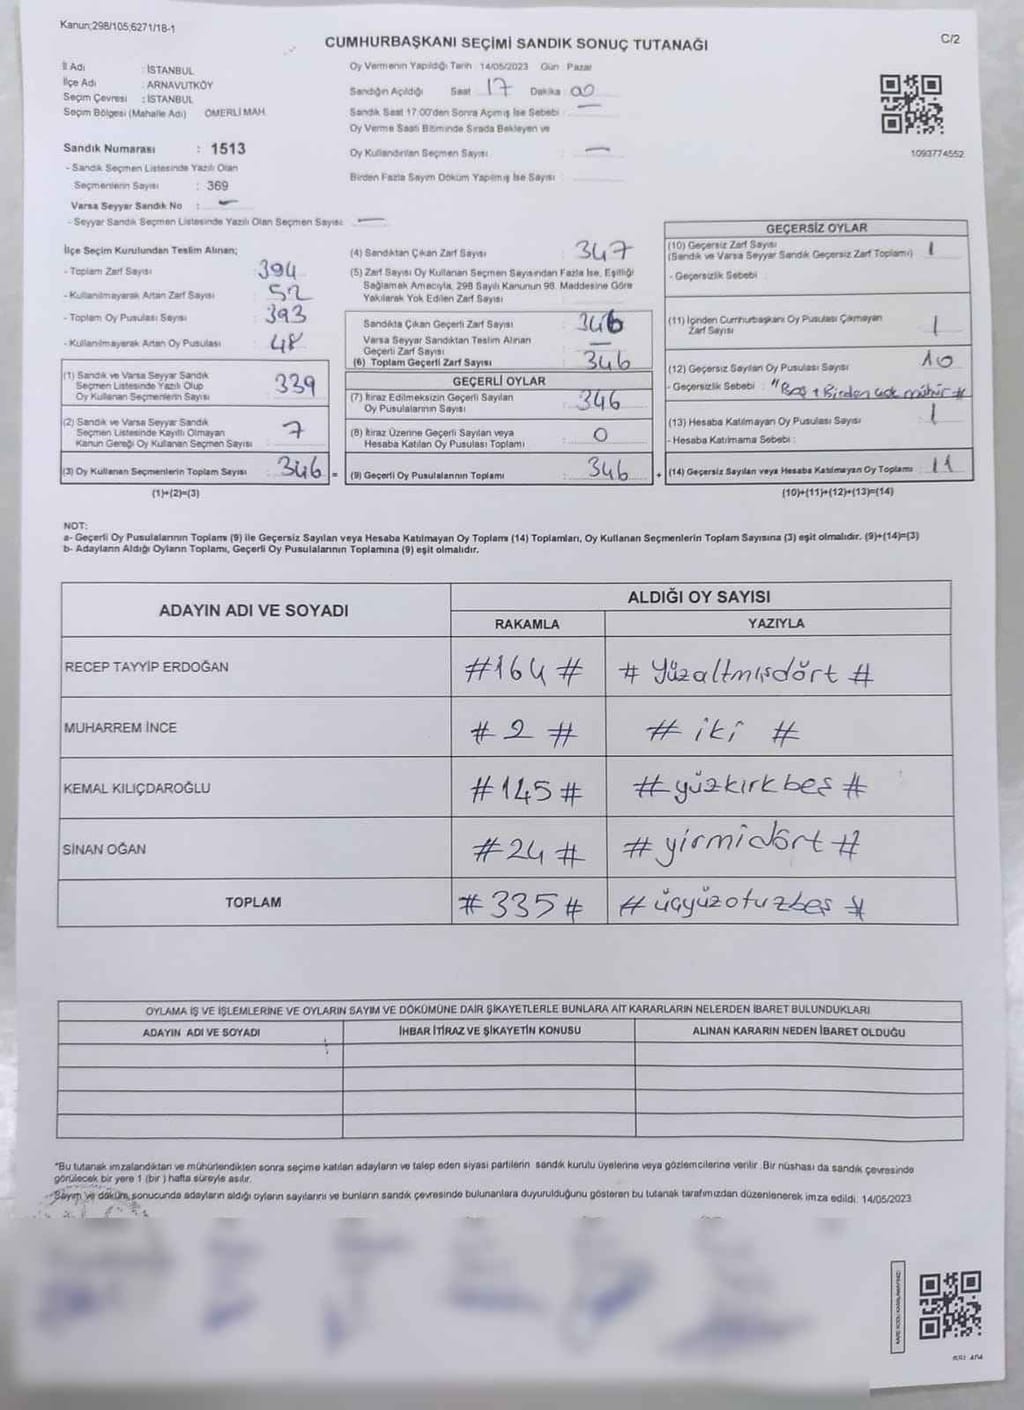 Kanun;298/105;6271/18-1
C/2
CUMHURBAŞKANI SEÇİMİ SANDIK SONUÇ TUTANAĞI
İl Adı : İSTANBUL
İlçe Adı : ARNAVUTKÖY
Seçim Çevresi : İSTANBUL
Seçim Bölgesi (Mahalle Adı) ÖMERLİ MAH.
Sandık Numarası : 1513
- Sandık Seçmen Listesinde Yazılı Olan
Seçmenlerin Sayısı : 369
Varsa Seyyar Sandık No : —
- Seyyar Sandık Seçmen Listesinde Yazılı Olan Seçmen Sayısı: —
Oy Vermenin Yapıldığı Tarih 14/05/2023 Gün : Pazar
Sandığın Açıldığı Saat 17 Dakika 00
Sandık Saat 17:00'den Sonra Açımış İse Sebebi : —
Oy Verme Saati Bitiminde Sırada Bekleyen ve
Oy Kullandırılan Seçmen Sayısı : —
Birden Fazla Sayım Döküm Yapılmış İse Sayısı :
1093774552
İlçe Seçim Kurulundan Teslim Alınan;
- Toplam Zarf Sayısı : 394
- Kullanılmayarak Artan Zarf Sayısı : 52
- Toplam Oy Pusulası Sayısı : 393
- Kullanılmayarak Artan Oy Pusulası : 48
(1) Sandık ve Varsa Seyyar Sandık
Seçmen Listesinde Yazılı Olup
Oy Kullanan Seçmenlerin Sayısı : 339
(2) Sandık ve Varsa Seyyar Sandık
Seçmen Listesinde Kayıtlı Olmayan
Kanun Gereği Oy Kullanan Seçmen Sayısı : 7
(3) Oy Kullanan Seçmenlerin Toplam Sayısı : 346 =
(1)+(2)=(3)
(4) Sandıktan Çıkan Zarf Sayısı : 347
(5) Zarf Sayısı Oy Kullanan Seçmen Sayısından Fazla İse, Eşitliği
Sağlamak Amacıyla, 298 Sayılı Kanunun 98. Maddesine Göre
Yakılarak Yok Edilen Zarf Sayısı :
Sandıkta Çıkan Geçerli Zarf Sayısı : 346
Varsa Seyyar Sandıktan Teslim Alınan
Geçerli Zarf Sayısı : —
(6) Toplam Geçerli Zarf Sayısı : 346
GEÇERLİ OYLAR
(7) İtiraz Edilmeksizin Geçerli Sayılan
Oy Pusulalarının Sayısı : 346
(8) İtiraz Üzerine Geçerli Sayılan veya
Hesaba Katılan Oy Pusulası Toplamı : 0
(9) Geçerli Oy Pusulalarının Toplamı : 346 +
GEÇERSİZ OYLAR
(10) Geçersiz Zarf Sayısı : 1
(Sandık ve Varsa Seyyar Sandık Geçersiz Zarf Toplamı)
- Geçersizlik Sebebi :
(11) İçinden Cumhurbaşkanı Oy Pusulası Çıkmayan
Zarf Sayısı : 1
(12) Geçersiz Sayılan Oy Pusulası Sayısı : 10
- Geçersizlik Sebebi : "Boş + Birden çok mühür #
(13) Hesaba Katılmayan Oy Pusulası Sayısı : 1
- Hesaba Katılmama Sebebi :
(14) Geçersiz Sayılan veya Hesaba Katılmayan Oy Toplamı : 11
(10)+(11)+(12)+(13)=(14)
NOT:
a- Geçerli Oy Pusulalarının Toplamı (9) ile Geçersiz Sayılan veya Hesaba Katılmayan Oy Toplamı (14) Toplamları, Oy Kullanan Seçmenlerin Toplam Sayısına (3) eşit olmalıdır. (9)+(14)=(3)
b- Adayların Aldığı Oyların Toplamı, Geçerli Oy Pusulalarının Toplamına (9) eşit olmalıdır.
ADAYIN ADI VE SOYADI
ALDIĞI OY SAYISI
RAKAMLA YAZIYLA
RECEP TAYYİP ERDOĞAN #164# # Yüzaltmışdört #
MUHARREM İNCE # 2 # # iki #
KEMAL KILIÇDAROĞLU #145# #yüzkırkbeş#
SİNAN OĞAN #24# #yirmidört#
TOPLAM #335# #üçyüzotuzbeş#
OYLAMA İŞ VE İŞLEMLERİNE VE OYLARIN SAYIM VE DÖKÜMÜNE DAİR ŞİKAYETLERLE BUNLARA AİT KARARLARIN NELERDEN İBARET BULUNDUKLARI
ADAYIN ADI VE SOYADI İHBAR İTİRAZ VE ŞİKAYETİN KONUSU ALINAN KARARIN NEDEN İBARET OLDUĞU
*Bu tutanak imzalandıktan ve mühürlendikten sonra seçime katılan adayların ve talep eden siyasi partilerin sandık kurulu üyelerine veya gözlemcilerine verilir. Bir nüshası da sandık çevresinde
görülecek bir yere 1 (bir) hafta süreyle asılır.
Sayım ve döküm sonucunda adayların aldığı oyların sayılarını ve bunların sandık çevresinde bulunanlara duyurulduğunu gösteren bu tutanak tarafımızdan düzenlenerek imza edildi. 14/05/2023